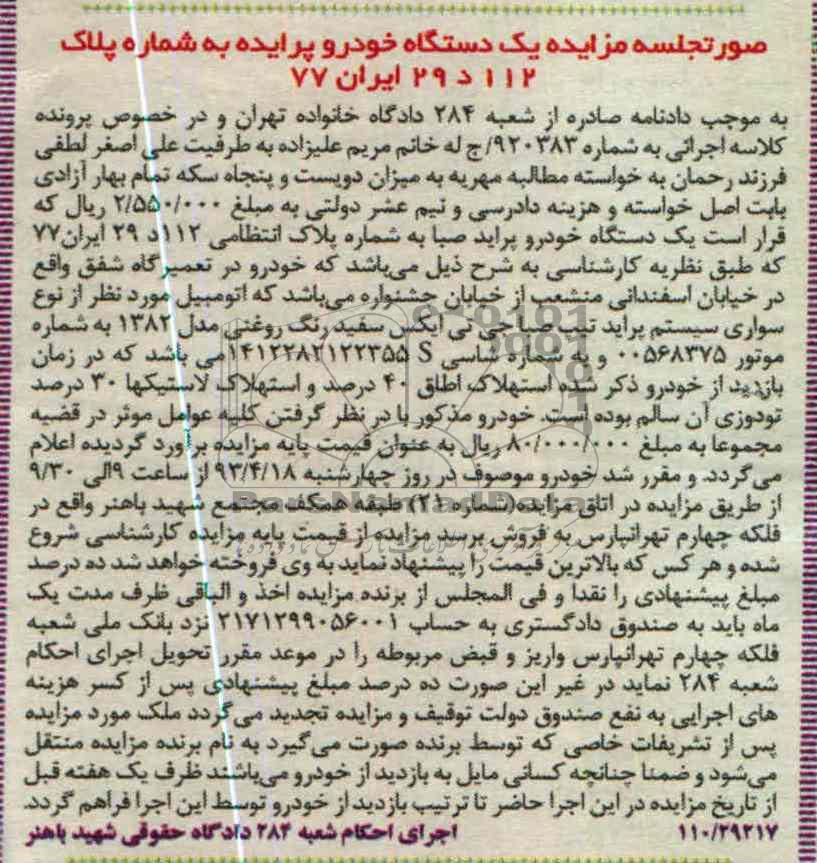 صورتجلسه مزایده یک دستگاه خودرو پرایده به شماره پلاک
۱۱۲ د ۲۹ ایران ۷۷
به موجب دادنامه صادره از شعبه ۲۸۴ دادگاه خانواده تهران و در خصوص پرونده
کلاسه اجرائی به شماره ۹۲۰۳۸۳/ج له خانم مریم علیزاده به طرفیت علی اصغر لطفی
فرزند رحمان به خواسته مطالبه مهریه به میزان دویست و پنجاه سکه تمام بهار آزادی
بابت اصل خواسته و هزینه دادرسی و نیم عشر دولتی به مبلغ ۲/۵۵۰/۰۰۰ ریال که
قرار است یک دستگاه خودرو پراید صبا به شماره پلاک انتظامی ۱۱۲د ۲۹ ایران۷۷
که طبق نظریه کارشناسی به شرح ذیل می‌باشد که خودرو در تعمیرگاه شفق واقع
در خیابان اسفندانی منشعب از خیابان جشنواره می‌باشد که اتومبیل مورد نظر از نوع
سواری سیستم پراید تیپ صبا جی تی ایکس سفید رنگ روغنی مدل ۱۳۸۲ به شماره
موتور ۰۰۵۶۸۳۷۵ و به شماره شاسی S ۱۴۱۲۲۸۲۱۲۲۳۵۵می باشد که در زمان
بازدید از خودرو ذکر شده استهلاک اطاق ۴۰ درصد و استهلاک لاستیکها ۳۰ درصد
تودوزی آن سالم بوده است. خودرو مذکور با در نظر گرفتن کلیه عوامل موثر در قضیه
مجموعا به مبلغ ۸۰/۰۰۰/۰۰۰ ریال به عنوان قیمت پایه مزایده برآورد گردیده اعلام
می‌گردد. و مقرر شد خودرو موصوف در روز چهارشنبه ۹۳/۴/۱۸ از ساعت ۹الی ۹/۳۰
از طریق مزایده در اتاق مزایده (شماره ۲۱) طبقه همکف مجتمع شهید باهنر واقع در
فلکه چهارم تهرانپارس به فروش برسد مزایده از قیمت پایه مزایده کارشناسی شروع
شده و هر کس که بالاترین قیمت را پیشنهاد نماید به وی فروخته خواهد شد ده درصد
مبلغ پیشنهادی را نقدا و فی المجلس از برنده مزایده اخذ و الباقی ظرف مدت یک
ماه باید به صندوق دادگستری به حساب ۲۱۷۱۲۹۹۰۵۶۰۰۱ نزد بانک ملی شعبه
فلکه چهارم تهرانپارس واریز و قبض مربوطه را در موعد مقرر تحویل اجرای احکام
شعبه ۲۸۴ نماید در غیر این صورت ده درصد مبلغ پیشنهادی پس از کسر هزینه
های اجرایی به نفع صندوق دولت توقیف و مزایده تجدید می‌گردد ملک مورد مزایده
پس از تشریفات خاصی که توسط برنده صورت می‌گیرد به نام برنده مزایده منتقل
می‌شود و ضمنا چنانچه کسانی مایل به بازدید از خودرو می‌باشند ظرف یک هفته قبل
از تاریخ مزایده در این اجرا حاضر تا ترتیب بازدید از خودرو توسط این اجرا فراهم گردد.
۱۱۰/۲۹۲۱۷ اجرای احکام شعبه ۲۸۴ دادگاه حقوقی شهید باهنر
ParsNamadData